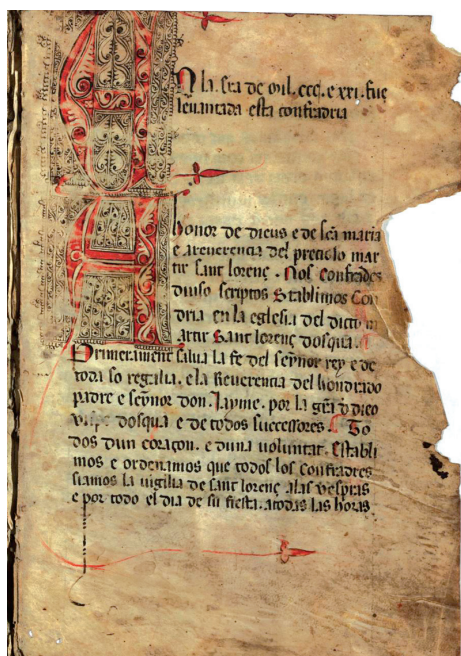 En la era de mil. ccc. e xxi. fue
leuantada esta confradria
A honor de dieus e de sca maria
e a reuerencia del precioso mar
tir sant lorenç. Nos confrades
diuso scriptos Stablimos Con
dria en la eglesia del dicto m
artir Sant lorenç dosqua.
Primerament salua la fe del seynor rey e de
toda so regalia. e la Reuerencia del hondrado
padre e seynor don Jayme. por la gra d dieo
dosqua e de todos successores. To
dos dun coraçon. e duna voluntat. Establi
mos e ordenamos que todos los confradres
siamos la uigilia de sant lorenç alas vespras
e por todo el dia de su fiesta. atodas las horas